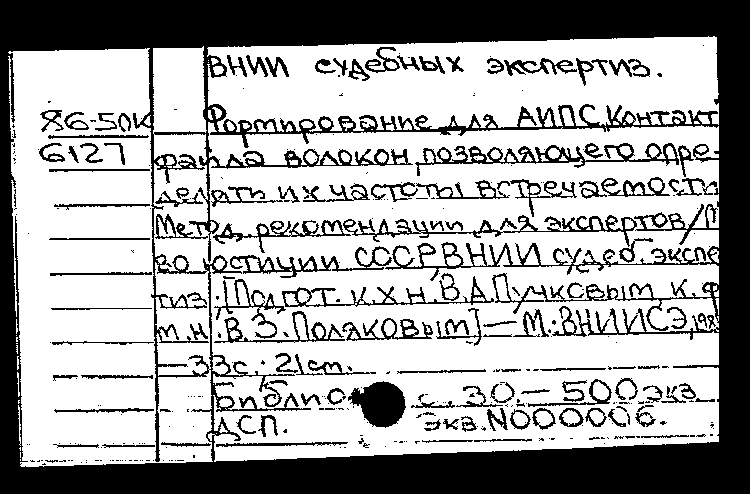 ВНИИ судебных экспертиз.
86-50К Формирование для АИПС "Контакт
6127 файла волокон, позволяющего опре-
делять их частоты встречаемости
Метод. рекомендации для экспертов/М
во юстиции СССР, ВНИИ судеб. экспе
тиз; [Подгот. к.х.н. В.А.Пучковым, к. ф
м.н. В.З.Поляковым] — М.: ВНИИСЭ, 198
—33с.; 21 cm.
Библио с. 30.— 500 экз
ДСП. Экз.N000006.